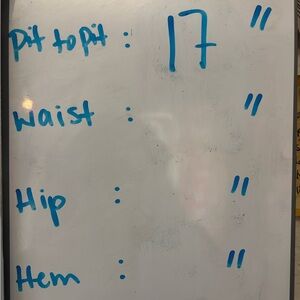 pit to pit : 17 "
waist : "
Hip : "
Hem : "